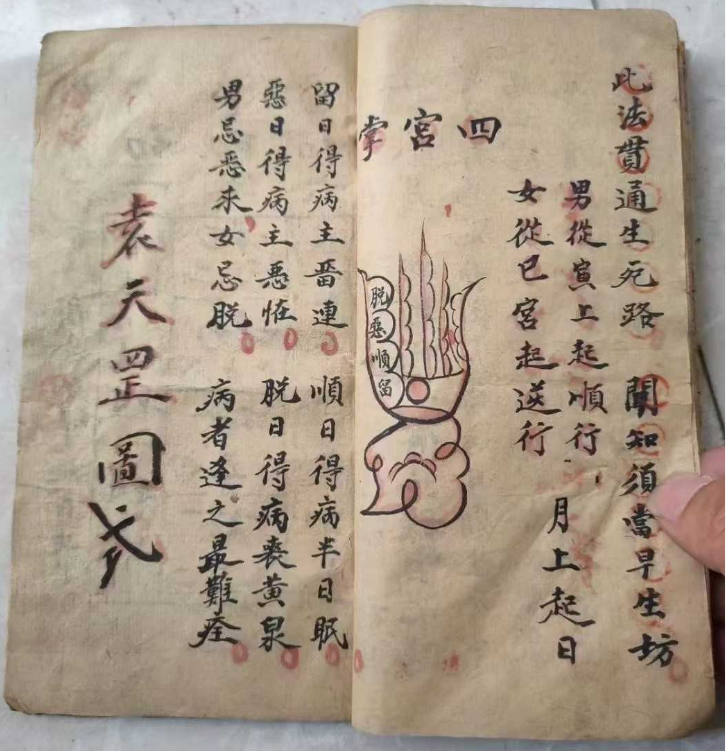 此法貫通生死路 聞知須當早生坊
男從寅上起順行
女從巳宮起逆行 月上起日
四宮掌
脫
惡
順
留
留日得病主畨連 順日得病半日眠
惡日得病主惡恠 脫日得病喪黃泉
男忌惡來女忌脫 病者逢之最難痊
袁天罡圖